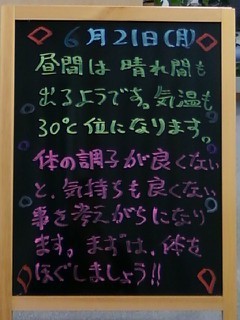 6月21日(月)
昼間は晴れ間も
出るようです。気温も
30℃位になります。
体の調子が良くない
と、気持ちも良くない
事を考えがちになり
ます。まずは、体を
ほぐしましょう!!